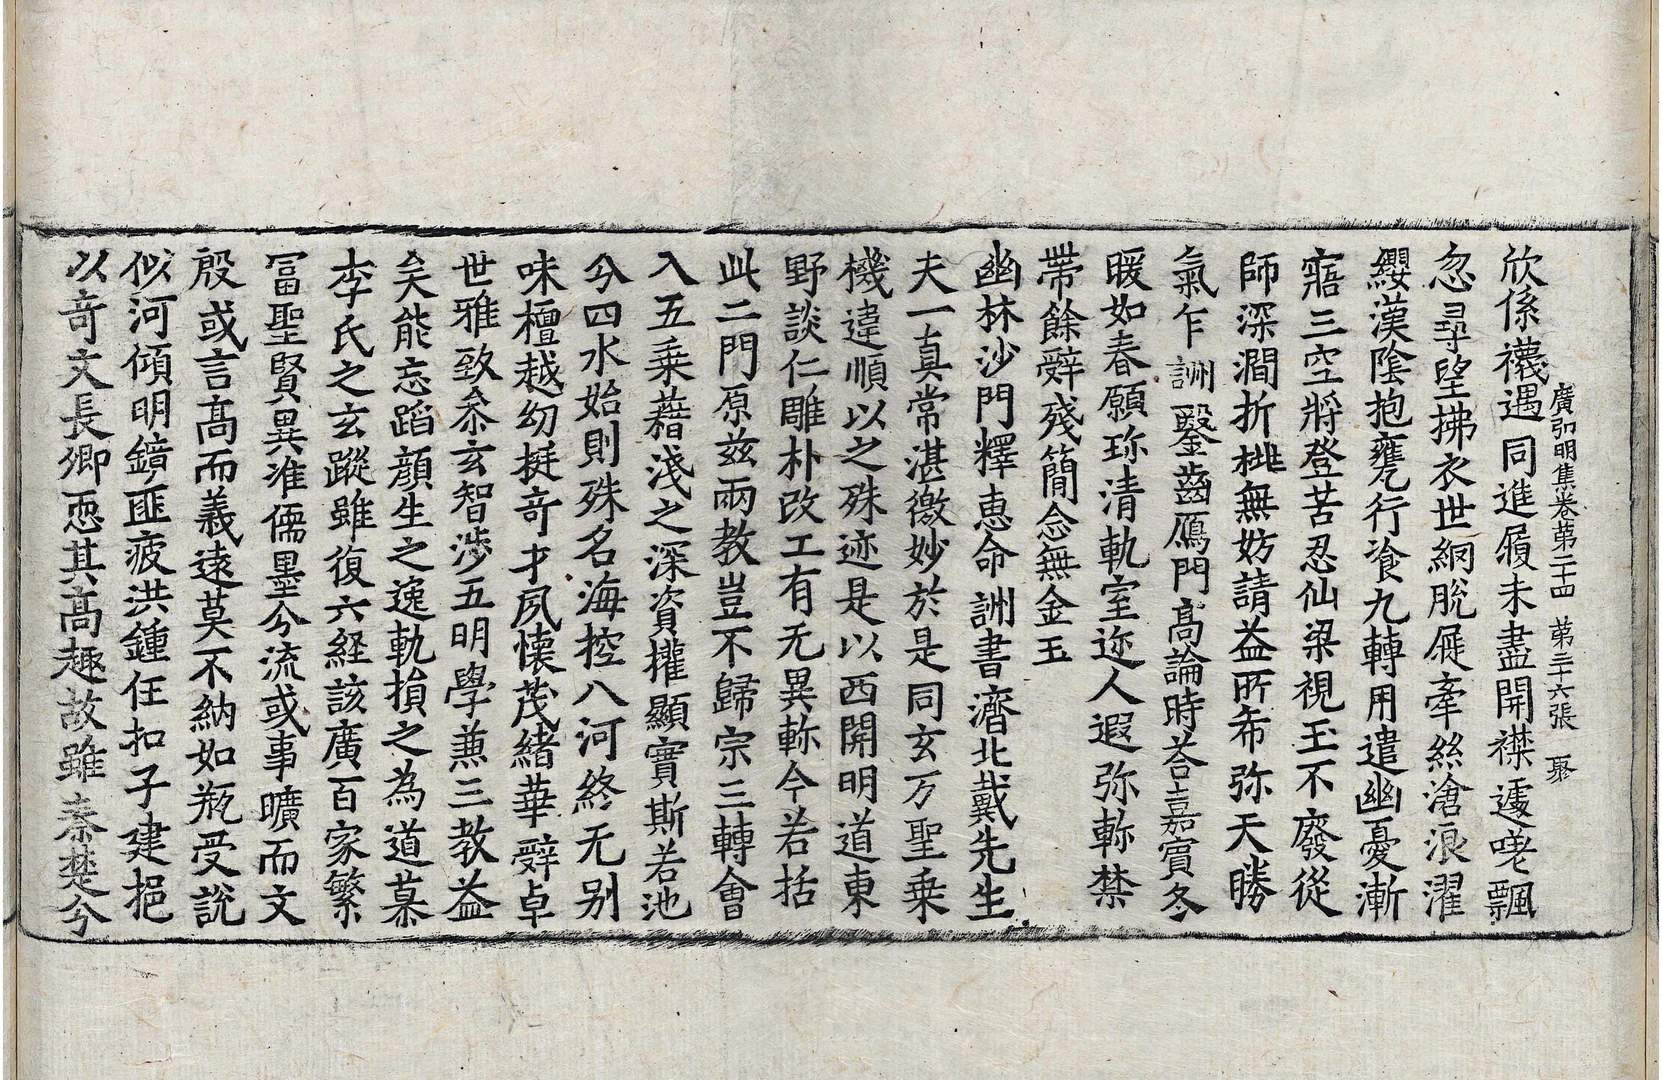 廣弘明集卷第二十四　第三十六張　聚
欣係襪遇同進履未盡開襟遽嗟飄
忽尋望拂衣世網脫屣牽絲滄浪濯
纓漢陰抱甕行飡九轉用遣幽憂漸
寤三空將登苦忍仙梁視玉不廢從
師深澗折桃無妨請益所希弥天勝
氣乍詶鑿齒鴈門高論時荅嘉賓冬
暖如春願珎清軌室迩人遐弥軫禁
帶餘辭殘簡念無金玉
幽林沙門釋惠命詶書濟北戴先生
夫一真常湛徼妙於是同玄万聖乗
機違順以之殊迹是以西開明道東
野談仁雕朴改工有无異軫今若括
此二門原兹兩教豈不歸宗三轉會
入五乗藉淺之深資權顯實斯若池
分四水始則殊名海控八河終无别
味檀越幼挺奇才夙懷茂緒華辭卓
世雅致叅玄智涉五明學兼三教益
矣能忘蹈顔生之逸軌損之為道慕
李氏之玄蹤雖復六経該廣百家繁
冨聖賢異准儒墨分流或事曠而文
殷或言高而義遠莫不納如瓶受說
似河傾明鏡匪疲洪鍾任扣子建挹
以奇文長卿恧其高趣故雖秦楚分